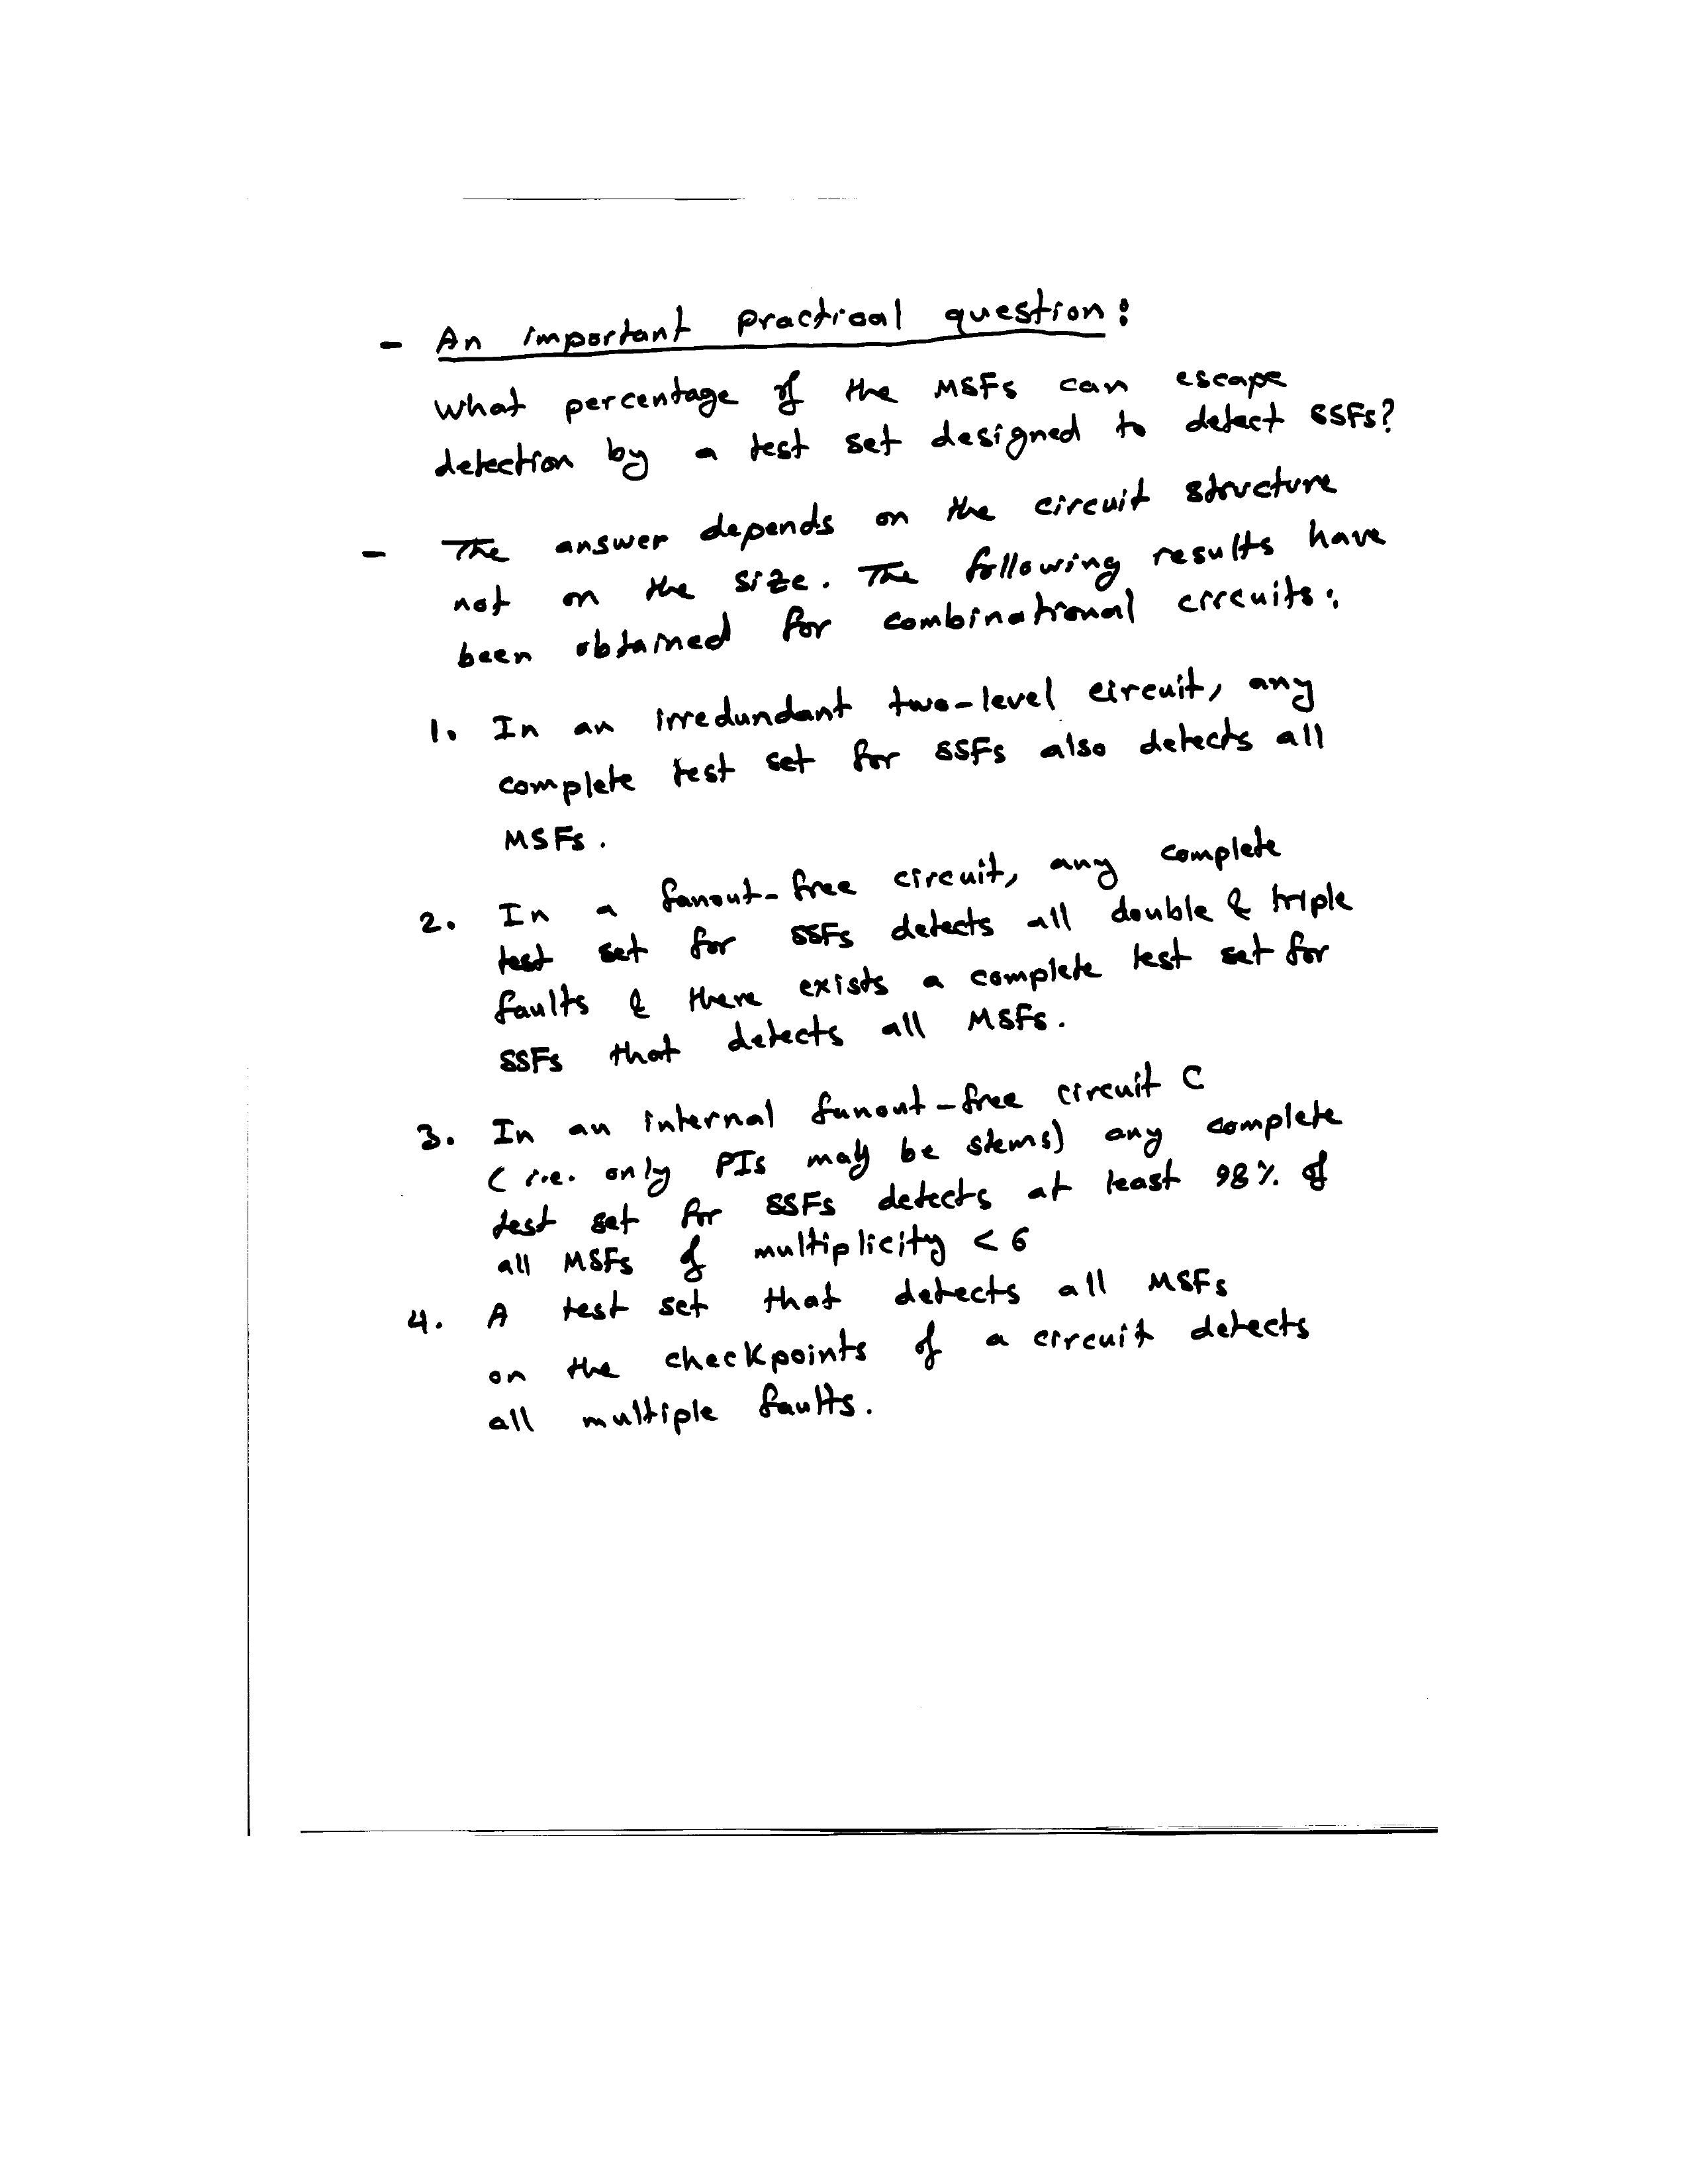 - An important practical question:
What percentage of the MSFs can escape
detection by a test set designed to detect SSFs?
- The answer depends on the circuit structure
not on the size. The following results have
been obtained for combinational circuits:
1. In an irredundant two-level circuit, any
complete test set for SSFs also detects all
MSFs.
2. In a fanout-free circuit, any complete
test set for SSFs detects all double & triple
faults & there exists a complete test set for
SSFs that detects all MSFs.
3. In an internal fanout-free circuit C
(i.e. only PIs may be stems) any complete
test set for SSFs detects at least 98% of
all MSFs of multiplicity < 6
4. A test set that detects all MSFs
on the checkpoints of a circuit detects
all multiple faults.